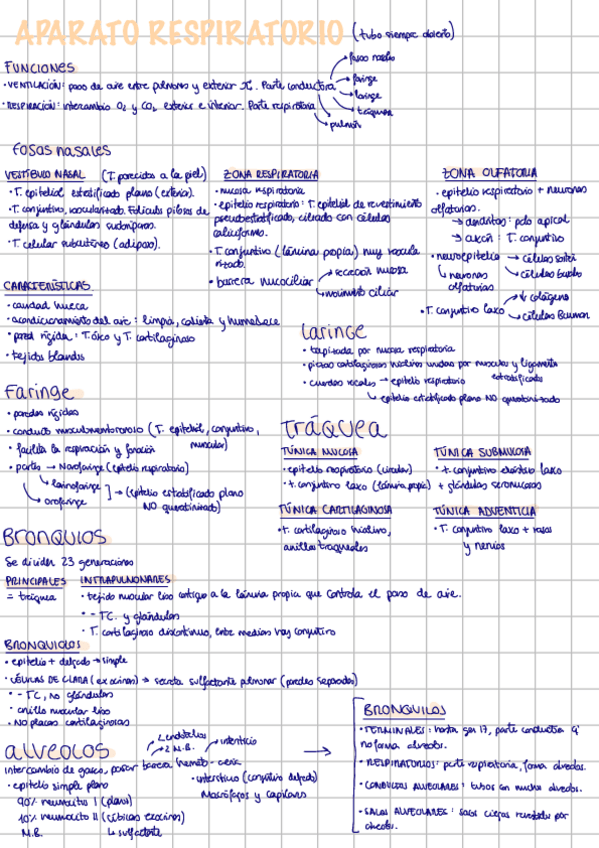 APARATO RESPIRATORIO (tubo siempre abierto)
FUNCIONES
· VENTILACIÓN: paso de aire entre pulmones y exterior. Parte conductora
→ fosas nasales
→ faringe
→ laringe
→ tráquea
→ pulmón
· RESPIRACIÓN: intercambio O2 y CO2 exterior e interior. Parte respiratoria
Fosas nasales
VESTÍBULO NASAL (T. parecidos a la piel)
· T. epitelial estratificado plano (externa).
· T. conjuntivo, vascularizado. Folículos pilosos de
defensa y glándulas sudoríparas.
· T. celular subcutáneo (adiposo).
ZONA RESPIRATORIA
· mucosa respiratoria
· epitelio respiratorio: T. epitelial de revestimiento
pseudoestratificado, ciliado con células
caliciformes.
· T. conjuntivo (lámina propia) muy vascula
rizado.
· barrera mucociliar → secreción mucosa
→ movimiento ciliar
ZONA OLFATORIA
· epitelio respiratorio + neuronas
olfatorias.
→ dendritas: polo apical
→ axón: T. conjuntivo
· neuroepitelio → células sostén
→ células basales
↳ neuronas
olfatorias
· T. conjuntivo laxo → ↓ colágeno
→ células Bowman
CARACTERÍSTICAS
· cavidad hueca
· acondicionamiento del aire: limpia, calienta y humedece
· pared rígida: T. óseo y T. cartilaginoso
· tejidos blandos
Laringe
· tapizada por mucosa respiratoria
· piezas cartilaginosas hialinas unidas por musculos y ligamentos
· cuerdas vocales → epitelio respiratorio estratificado
↳ epitelio estratificado plano NO queratinizado
Faringe
· paredes rígidas
· conducto musculomembranoso (T. epitelial, conjuntivo,
muscular)
· facilita la respiración y fonación
· partes → Nasofaringe (epitelio respiratorio)
→ laringofaringe
→ orofaringe
] → (epitelio estratificado plano
NO queratinizado)
Tráquea
TÚNICA MUCOSA
· epitelio respiratorio (circular)
· t. conjuntivo laxo (lámina propia)
TÚNICA SUBMUCOSA
· t. conjuntivo elástico laxo
+ glándulas seromucosas
TÚNICA CARTILAGINOSA
· t. cartilaginoso hialino,
anillos traqueales
TÚNICA ADVENTICIA
· T. conjuntivo laxo + vasos
y nervios
BRONQUIOS
Se dividen 23 generaciones
PRINCIPALES
= tráquea
INTRAPULMONARES
· tejido muscular liso contiguo a la lámina propia que controla el paso de aire.
· - TC. y glándulas
· T. cartilaginoso discontinuo, entre medias hay conjuntivo
BRONQUIOLOS
· epitelio + delgado → simple
· CÉLULAS DE CLARA (exocrinas) → secreta sulfactante pulmonar (paredes separadas)
· - TC, no glándulas
· anillo muscular liso
· NO placas cartilaginosas
alveolos
intercambio de gases, pasar barrera hemato-aérea
→ 2 endotelios
→ 2 M.B.
→ intersticio
· epitelio simple plano
90% neumocito I (plano)
10% neumocito II (cúbicas exocrinas)
↳ sulfactante
M.B.
· intersticio (conjuntivo delgado)
Macrófagos y capilares
→
BRONQUIOLOS
· TERMINALES: hasta gen 17, parte conductora q
no forma alveolos.
· RESPIRATORIOS: parte respiratoria, forma alveolos.
· CONDUCTOS ALVEOLARES: tubos con muchos alveolos.
· SACOS ALVEOLARES: sacos ciegos revestidos por
alveolos.